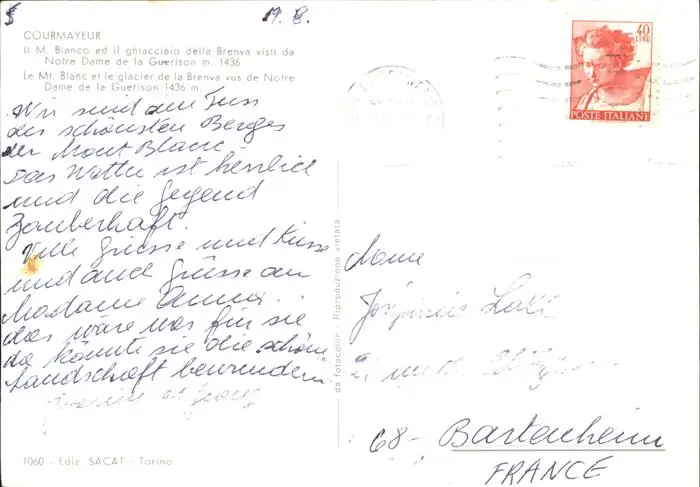 19. 8.
COURMAYEUR
Il M. Bianco ed il ghiacciaio della Brenva visti da
Notre Dame de la Guerison m. 1436
Le Mt. Blanc et le glacier de la Brenva vus de Notre
Dame de la Guerison 1436 m.
40
LIRE
POSTE ITALIANE
Wir sind am Fuss
des schönsten Berges
der Mont Blanc
Das Wetter ist herrlich
und die Gegend
Zauberhaft.
Viele Grüsse und Küsse
und auch Grüsse an
Madame Anna.
das wäre was für sie
da könnte sie die schöne
Landschaft bewundern
et
da Fotocolor - Riproduzione vietata
Mme
68 - Bartenheim
FRANCE
1060 - Ediz. SACAT - Torino